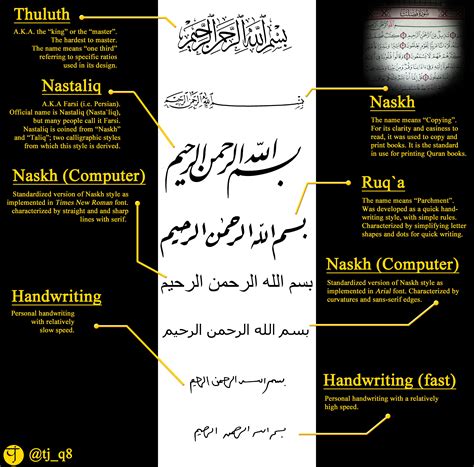 Thuluth
A.K.A. the “king” or the “master”.
The hardest to master.
The name means “one third”
referring to specific ratios
used in its design.
Nastaliq
A.K.A Farsi (i.e. Persian).
Official name is Nastaliq (Nasta`liq),
but many people call it Farsi.
Nastaliq is coined from “Naskh”
and “Taliq”; two calligraphic styles
from which this style is derived.
Naskh (Computer)
Standardized version of Naskh style as
implemented in Times New Roman font.
characterized by straight and and sharp
lines with serif.
Handwriting
Personal handwriting
with relatively
slow speed.
بسم الله الرحمن الرحيم
بسم الله الرحمن الرحيم
بسم الله الرحمن الرحيم
بسم الله الرحمن الرحيم
بسم الله الرحمن الرحيم
بسم الله الرحمن الرحيم
بسم الله الرحمن الرحيم
بسم الله الرحمن الرحيم
Naskh
The name means “Copying”.
For its clarity and easiness
to read, it was used to copy and
print books. It is the standard
in use for printing Quran books.
Ruq`a
The name means “Parchment”.
Was developed as a quick hand-
writing style, with simple rules.
Characterized by simplifying letter
shapes and dots for quick writing.
Naskh (Computer)
Standardized version of Naskh style as
implemented in Arial font. Characterized by
curvatures and sans-serif edges.
Handwriting (fast)
Personal handwriting with a relatively
high speed.
@tj_q8